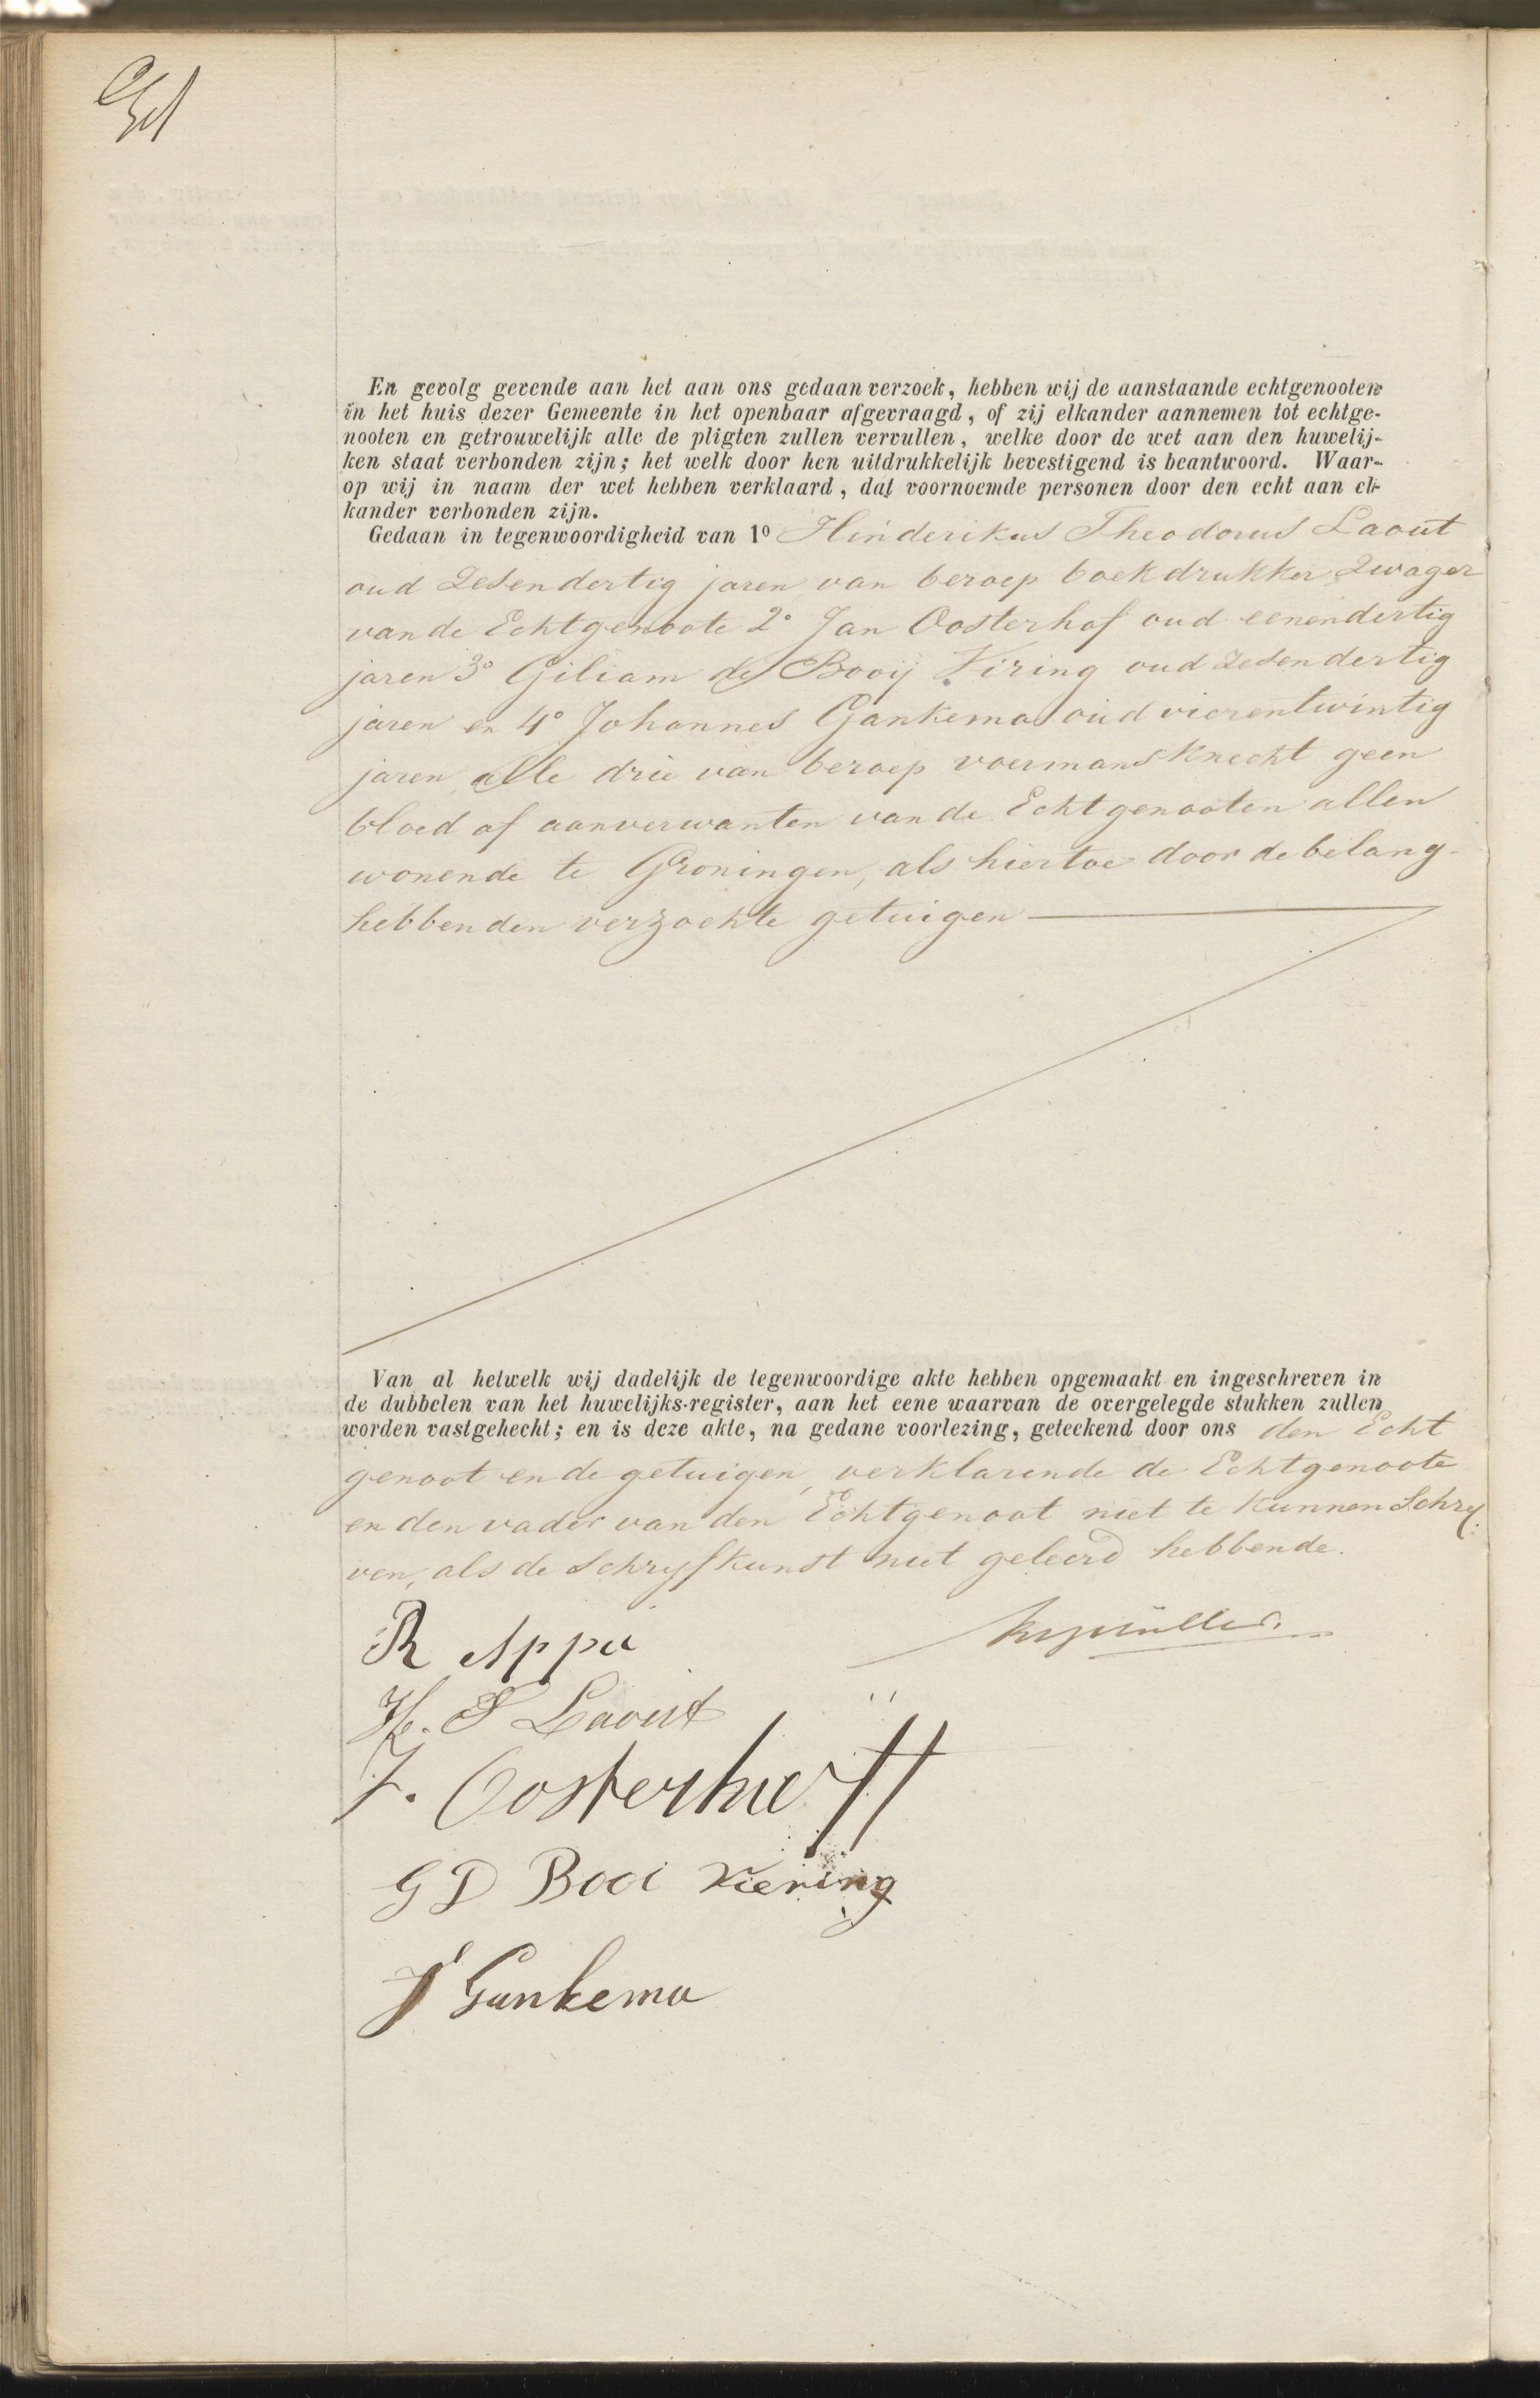 En gevolg gevende aan het aan ons gedaan verzoek, hebben wij de aanstaande echtgenooten
in het huis dezer Gemeente in het openbaar afgevraagd, of zij elkander aannemen tot echtge-
nooten en getrouwelijk alle de pligten zullen vervullen, welke door de wet aan den huwelij-
ken staat verbonden zijn; het welk door hen uitdrukkelijk bevestigend is beantwoord. Waar-
op wij in naam der wet hebben verklaard, dat voornoemde personen door den echt aan el-
kander verbonden zijn.
Gedaan in tegenwoordigheid van 1º Hinderikus Theodorus Laout
oud Zesendertig jaren van beroep boekdrukker Zwager
van de Echtgenoote 2º Jan Oosterhof oud eenendertig
jaren 3º Giliam de Booij Viring oud Zesendertig
jaren en 4º Johannes Gankema oud vierentwintig
jaren, alle drie van beroep voermansknecht geen
bloed of aanverwanten van de Echtgenooten allen
wonende te Groningen, als hiertoe door de belang-
hebbenden verzochte getuigen
Van al hetwelk wij dadelijk de tegenwoordige akte hebben opgemaakt en ingeschreven in
de dubbelen van het huwelijks-register, aan het eene waarvan de overgelegde stukken zullen
worden vastgehecht; en is deze akte, na gedane voorlezing, geteekend door ons den Echt
genoot en de getuigen, verklarende de Echtgenoote
en den vader van den Echtgenoot niet te kunnen Schrij
ven, als de Schrijfkunst niet geleerd hebbende.
R Appa
H. T Laout
J. Oosterhoff
G D Booi Viering
J Gankema